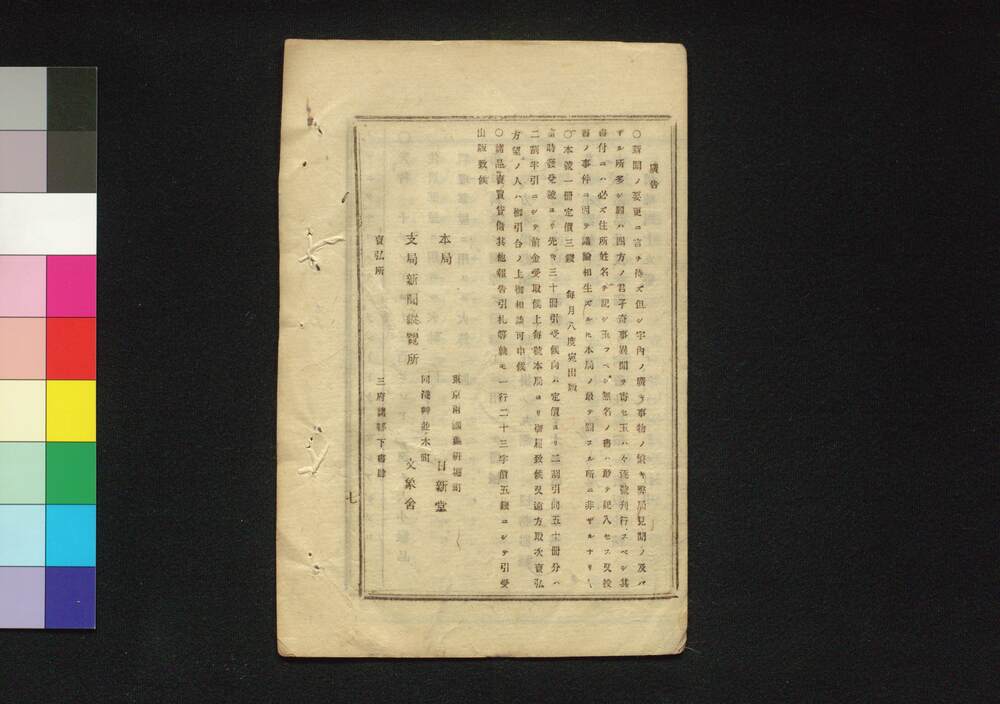 廣告
〇新聞ノ要更ニ言ヲ待ズ但シ宇內ノ廣キ事物ノ繁キ弊局見聞ノ及バ
ザル所多シ願ハ四方ノ君子奇事異聞ヲ寄セ玉ハヾ逐號刊行スベシ其
書付ニハ必ズ住所姓名ヲ記シ玉フベシ無名ノ書ハ敢テ記入セズ又投
書ノ事件ニ因テ議論相生ズル𪜈本局ノ敢テ關スル所ニ非ザルナリ
〇本號一冊定價三錢 每月八度宛出版
當時發兌號ヨリ先キ三十冊引受候向ハ定價ヨリ二割引同五十冊分ハ
二割半引ニシテ前金受取候上每號本局ヨリ御屆致候又遠方取次賣弘
方望ノ人ハ御引合ノ上御相談可申候
〇諸品賣買貸借其他報告引札等候モ一行二十三字價五錢ニシテ引受
出版致候
本局 東京兩國 日新堂
支局新聞縱覽所 同淺艸並木町 文象舍
賣弘所 三府諸縣下書肆
七